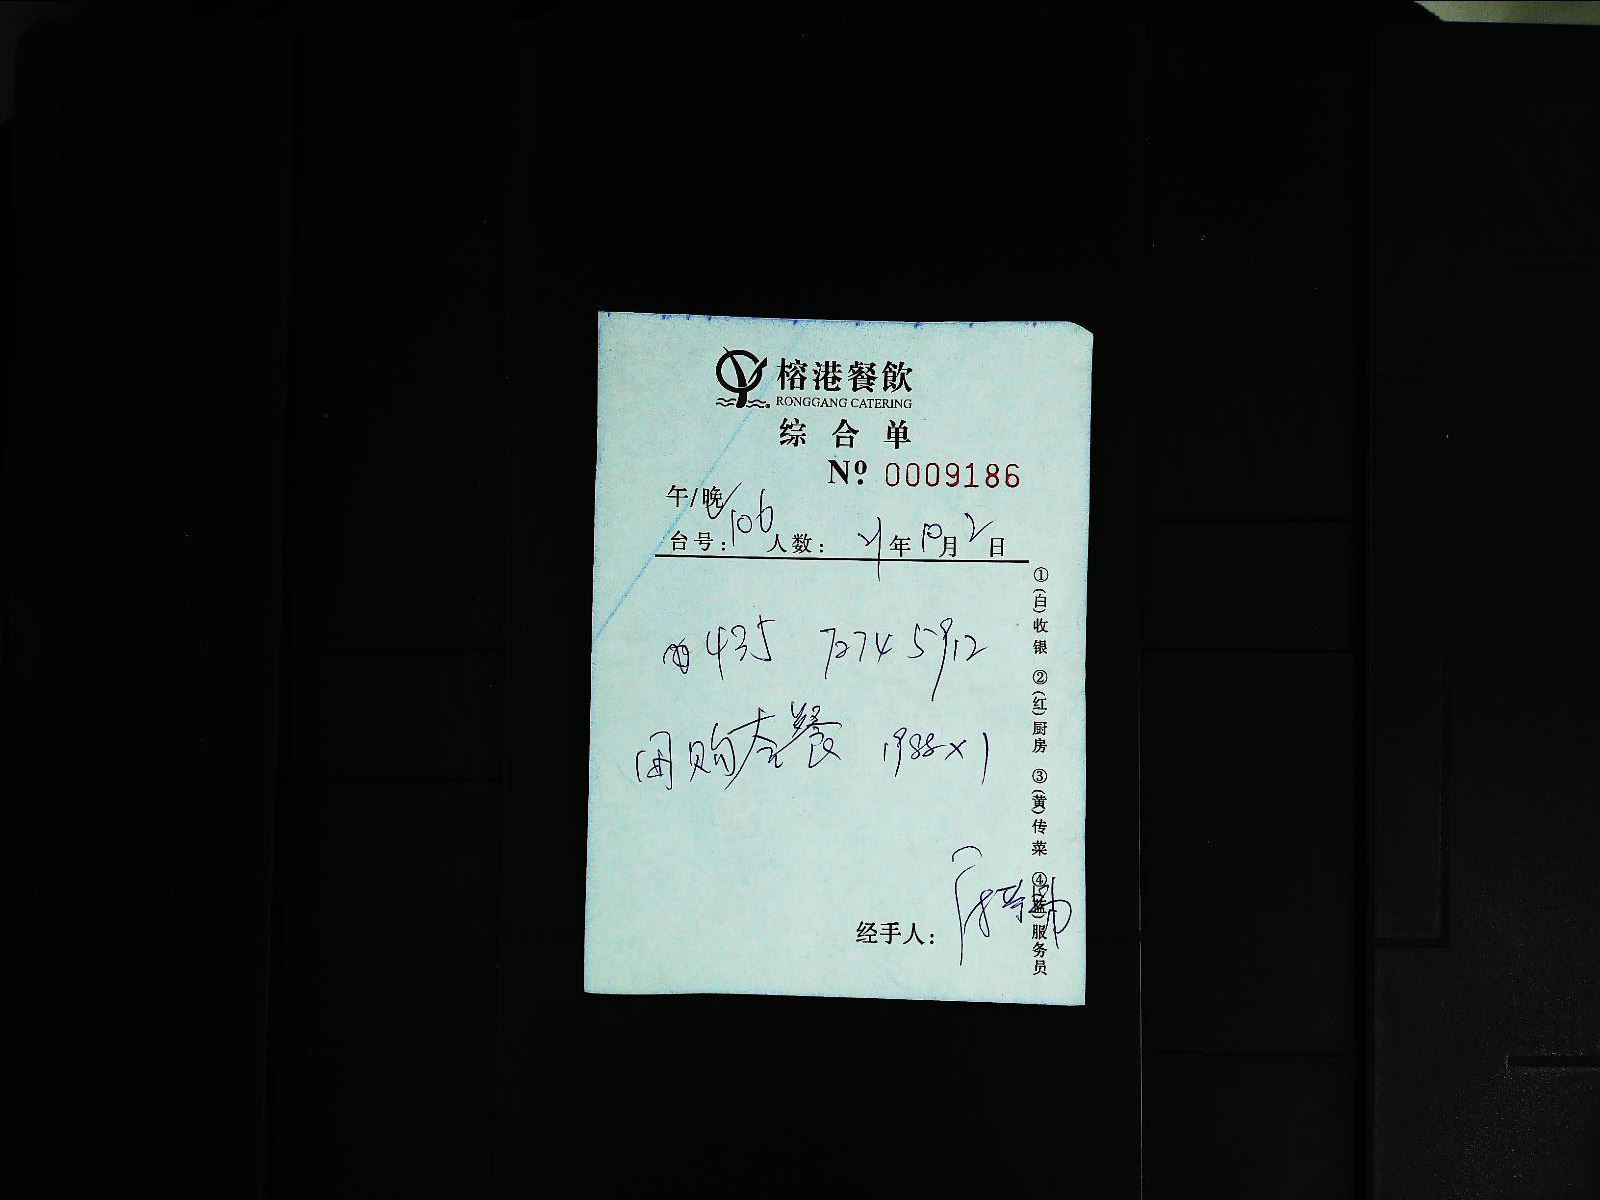 榕港餐飲
RONGGANG CATERING
综合单
Nº 0009186
午/晚
台号: 106 人数: 21年10月2日
435 7274 5912
团购套餐 1988×1
经手人:
①(白)收银 ②(红)厨房 ③(黄)传菜 ④(蓝)服务员